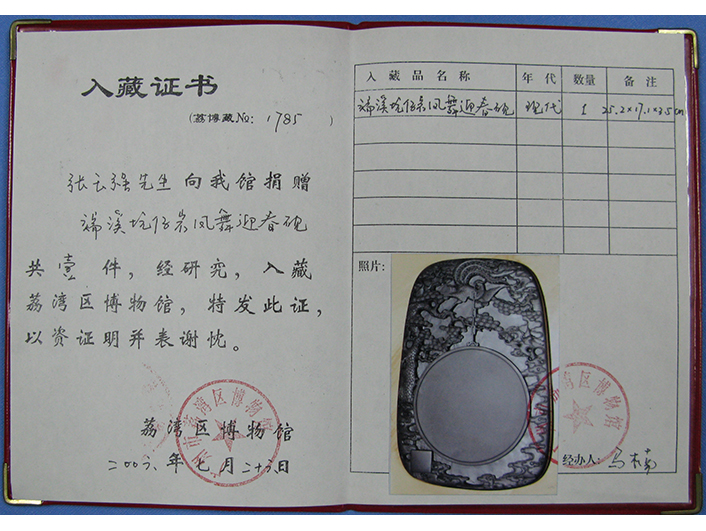 入藏证书
(荔博藏No: 1785 )
张云强先生向我馆捐赠
端溪坑仔岩凤舞迎春砚
共壹件，经研究，入藏
荔湾区博物馆，特发此证，
以资证明并表谢忱。
荔湾区博物馆
二00六年七月二十六日
广州市荔湾区博物馆
入藏品名称 年代 数量 备注
端溪坑仔岩凤舞迎春砚 现代 1 25.2×17.1×3.5cm
照片:
荔湾区博物馆
经办人: